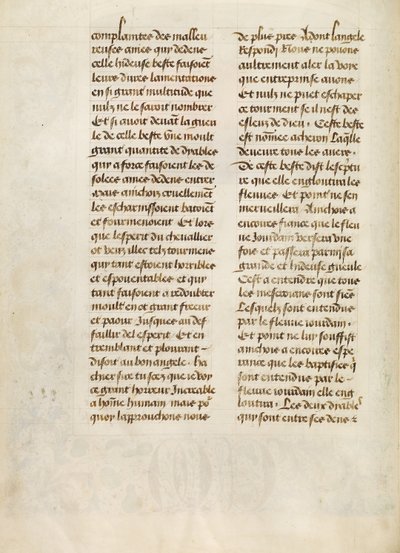 complaintes des malleu
reuses ames qui dedens
celle hideuse beste faisoient
leurs dures lamentations
en si grant multitude que
nulz ne le saroit nombrer
Et si avoit devant la gueu
le de celle beste une moult
grant quantite de dyables
quy a force faisoient les de
solees ames dedens entrer
mais ainchois cruellement
les escharnissoient batoient
et fourmenoient Et lors
que lesperit du chevallier
ot veu illec telz tourmens
quy tant estoient horribles
et espouentables et quy
tant faisoient a redoubter
moult en ot grant freeur
et paour Jusques au def
faillir del esperit Et en
tremblant et plourant
disoit au bon angele . ha
chier sire tu scez que je voy
ce grant horreur Increable
a home humain mais por
quoy lapprouchons nous
de plus pres Adont langele
Respondi Nous ne povons
aultrement aler la voye
que entreprinse avons
Et nulz ne puet eschaper
ce tourment se il nest des
esleuz de dieu . Ceste beste
est nomee acheron Laqlle
deveure tous les avers .
De ceste beste dist lescriptu
re que elle engloutira les
fleuves Et point ne sen
merveillera Ainchois a
encores fiance que le fleu
ve Jourdain versera une
fois et passera parmi sa
grande et hideuse gueule
Cest a entendre que tous
les mescreans sont sies
Lesquelz sont entendus
par le fleuve iourdain .
Et point ne luy souffist
ainchois a encores espe
rance que les baptisies q
sont entendus par le
fleuve iourdain elle eng
loutira . Les deux dyables
quy sont entre ses dens z